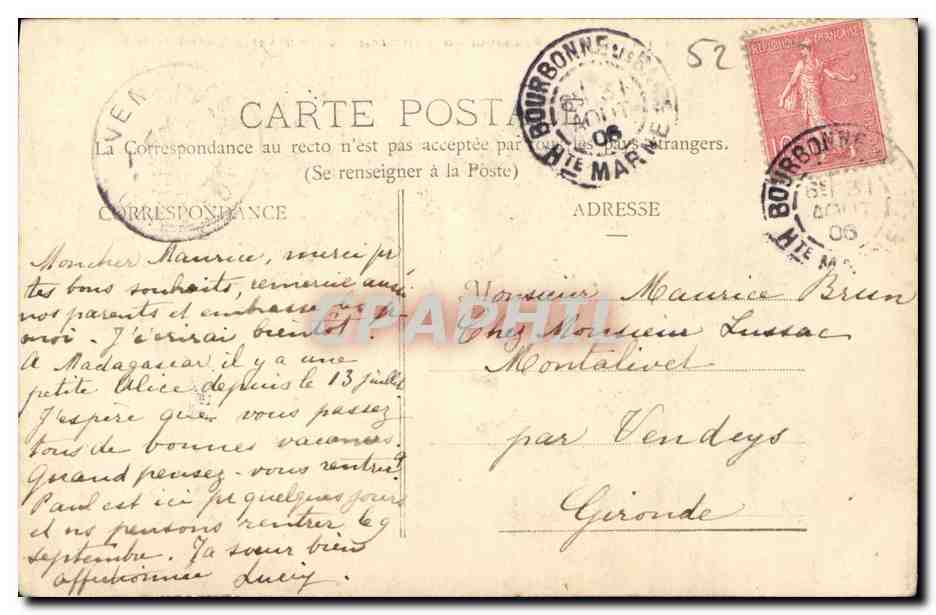 52
REPUBLIQUE FRANÇAISE
BOURBONNE
AOUT
06
HTE MARNE
BOURBONNE
31
AOUT
06
HTE MA
VEN
CARTE POSTALE
La Correspondance au recto n'est pas acceptée par tous les pays étrangers.
(Se renseigner à la Poste)
CORRESPONDANCE
Mon cher Maurice, merci pr
tes bons souhaits, remercie aussi
nos parents et embrasse les pr
moi. J't'écrirai bientôt.
A Madagascar il y a une
petite Alice depuis le 13 juillet
J'espère que vous passez
tous de bonnes vacances.
Quand pensez-vous rentrer?
Paul est ici pr quelques jours
et ns pensons rentrer le 9
septembre. Ta sœur bien
affectionnée Lucy.
ADRESSE
Monsieur Maurice Brun
Chez Monsieur Lussac
Montalivet
par Vendays
Gironde
CPAPHIL